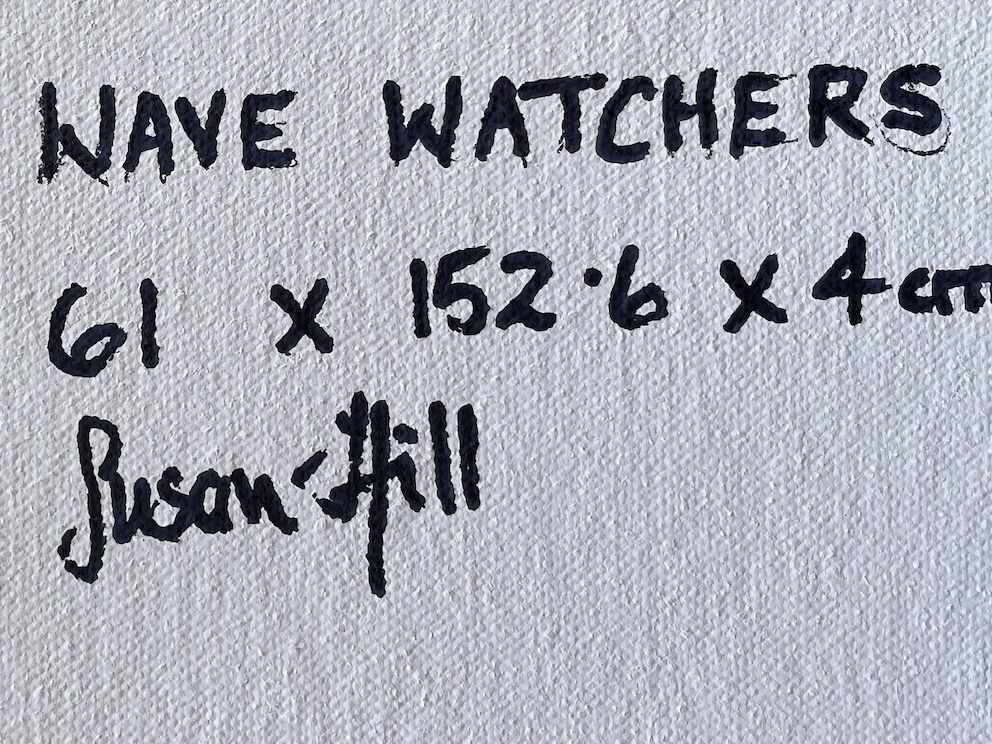 WAVE WATCHERS
61 x 152·6 x 4cm
Susan Hill